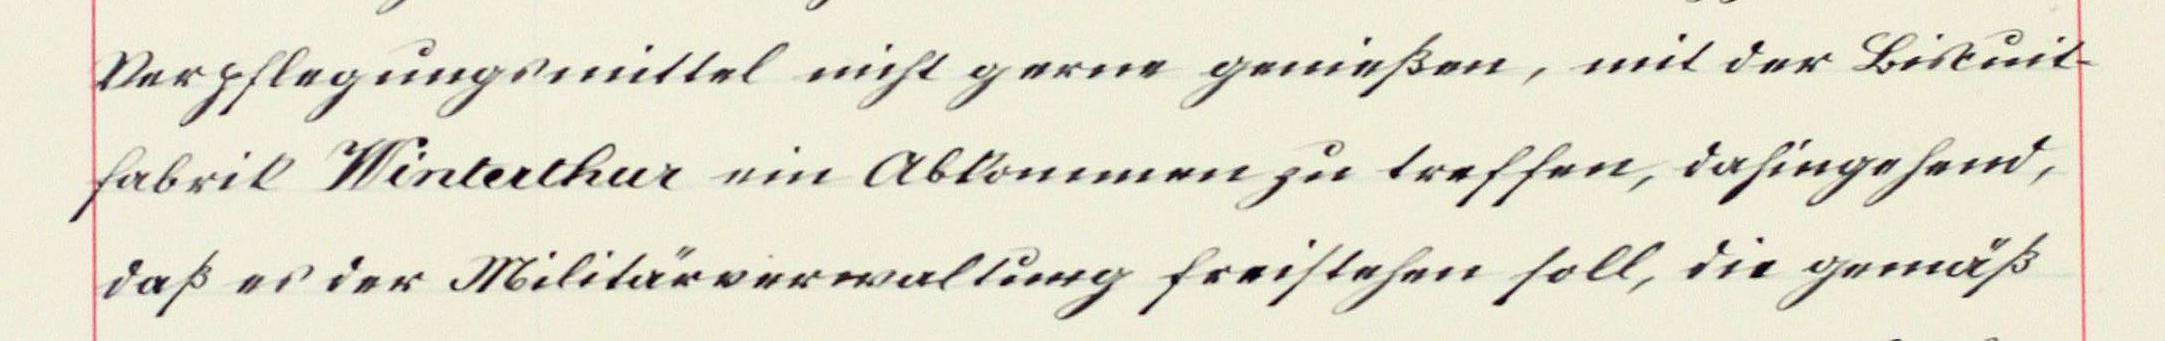 Verpflegungsmittel nicht gerne genießen, mit der Biscuit-
fabrik Winterthur ein Abkommen zu treffen, dahingehend,
daß es der Militärverwaltung freistehen soll, die gemäß